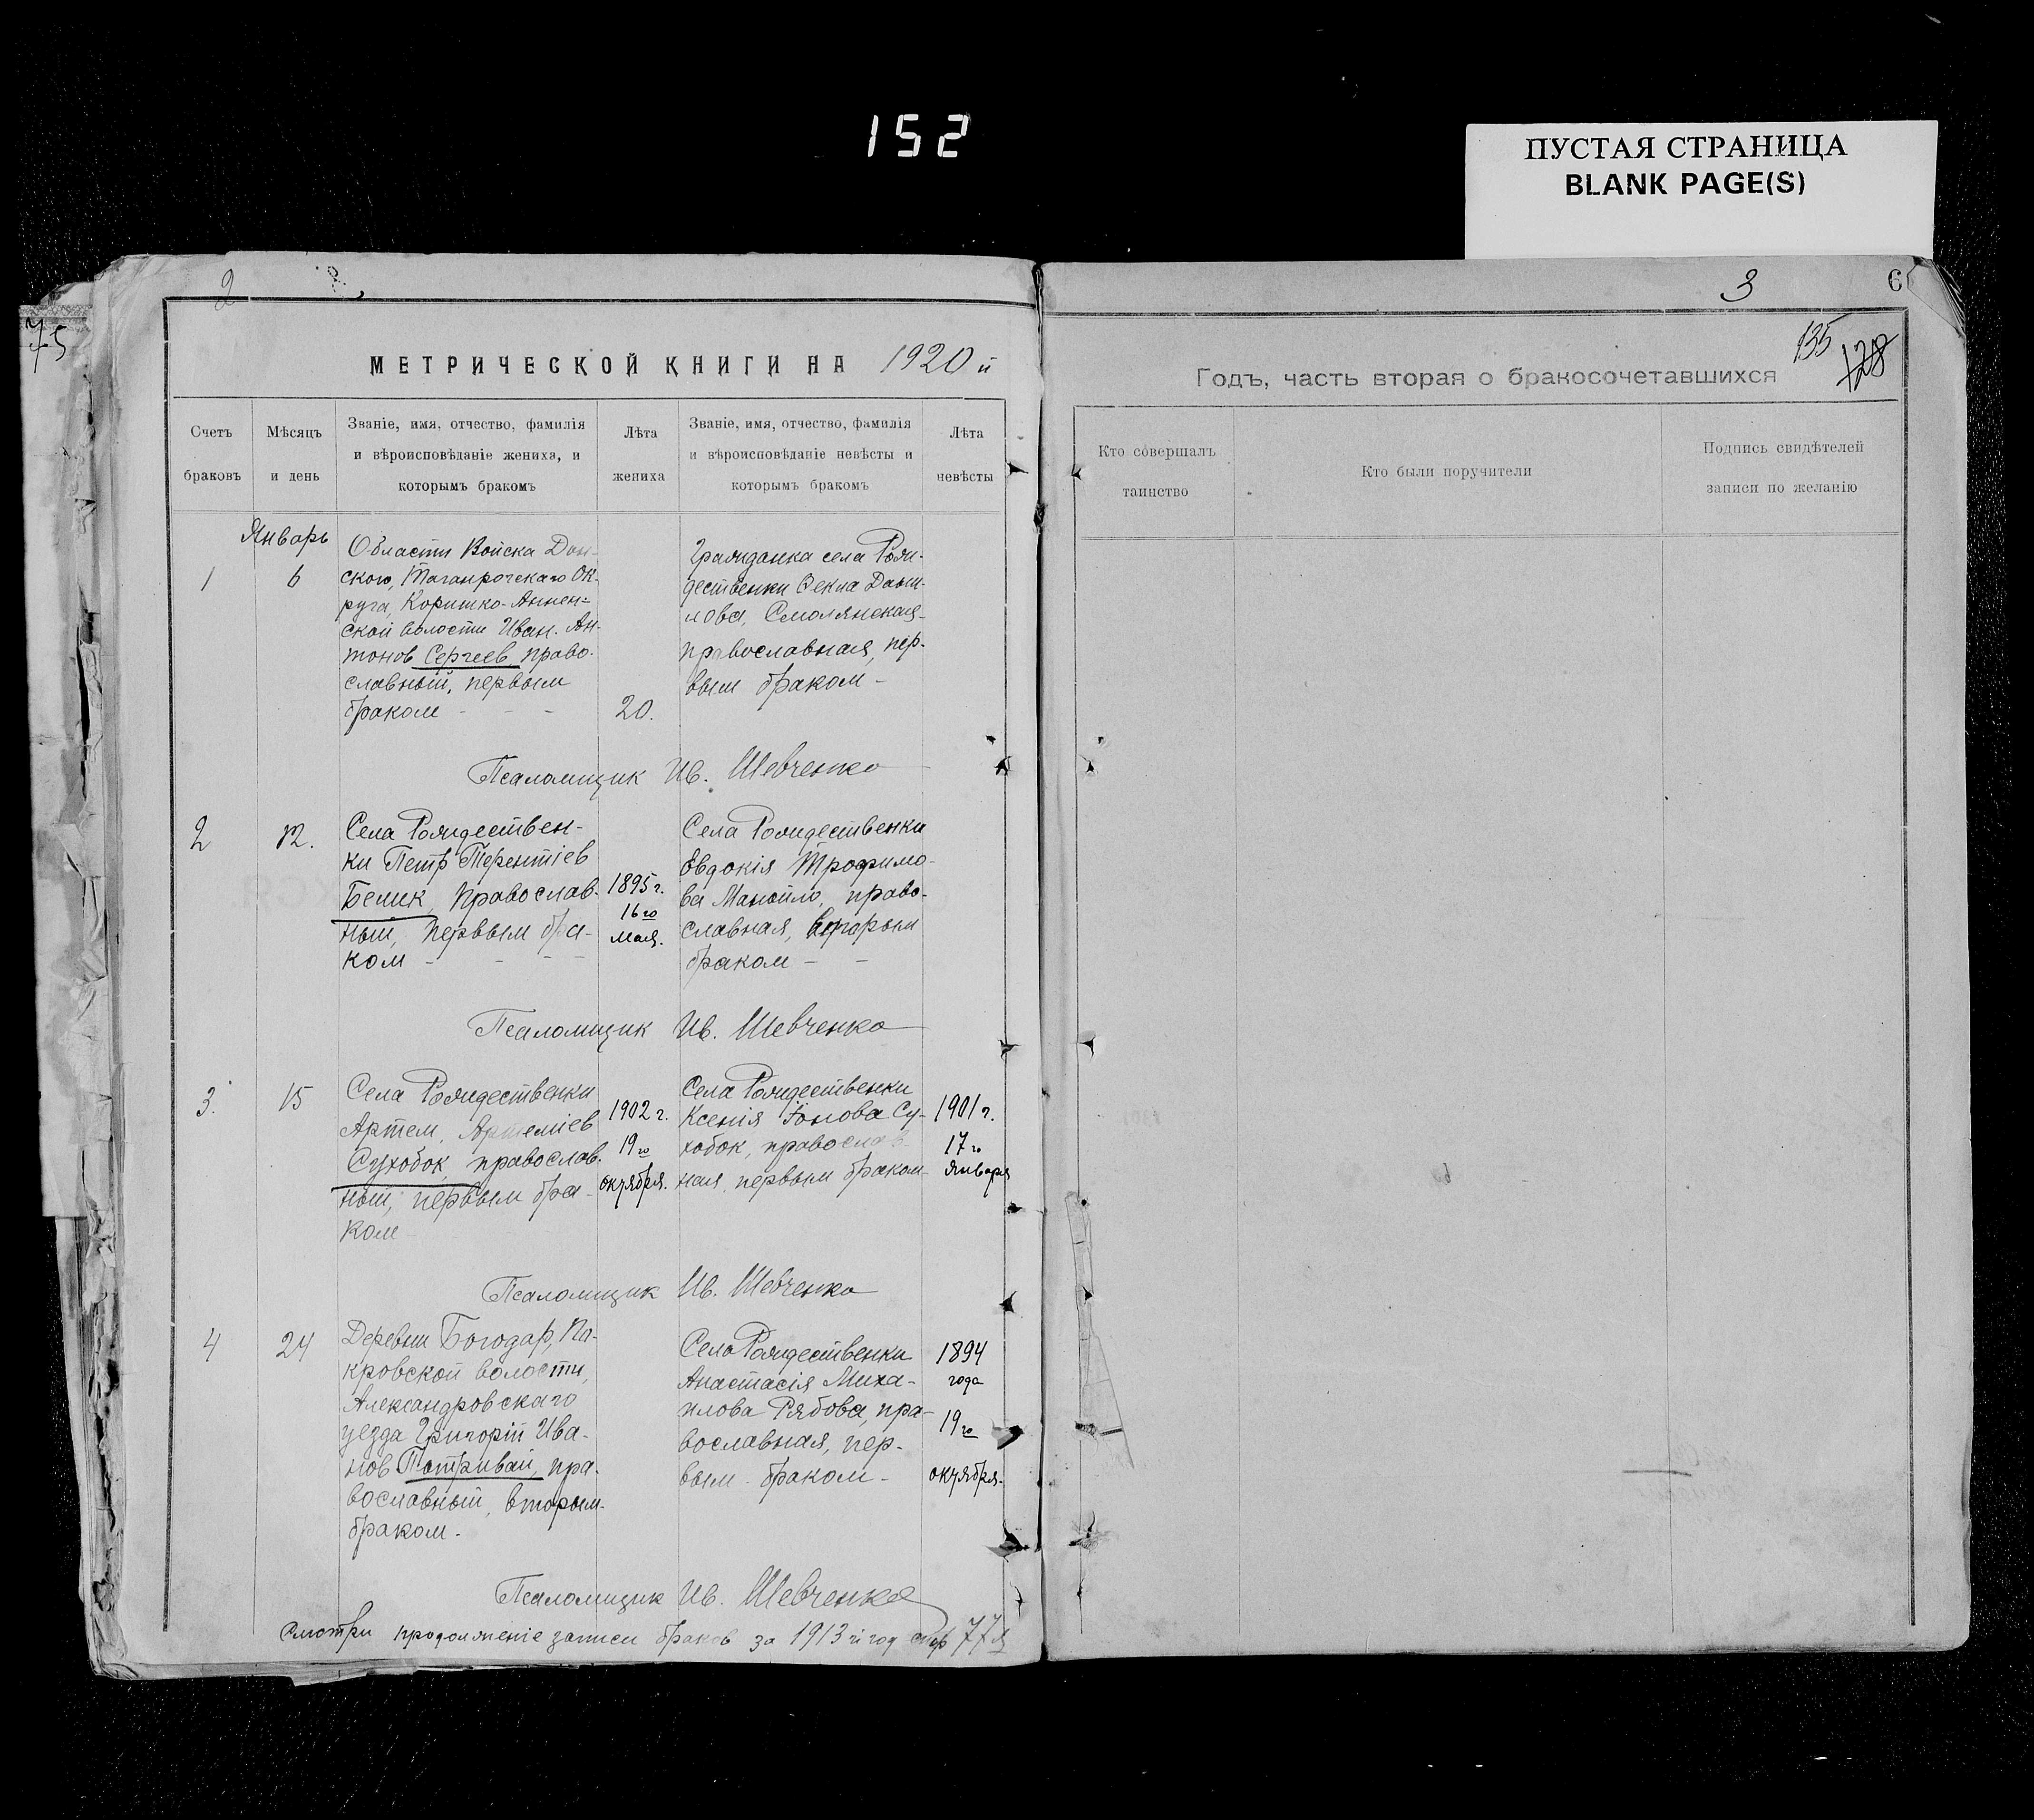 152
ПУСТАЯ СТРАНИЦА
BLANK PAGE(S)
2
75
МЕТРИЧЕСКОЙ КНИГИ НА 1920 й
Счетъ браковъ
Мѣсяцъ и день
Званіе, имя, отчество, фамилія
и вѣроисповѣданіе жениха, и
которымъ бракомъ
Лѣта жениха
Званіе, имя, отчество, фамилія
и вѣроисповѣданіе невѣсты и
которымъ бракомъ
Лѣта невѣсты
Январь
1
6
Области Войска Дон-
ского, Таганрогскаго Ок-
руга, Аннен-
ской волости Иван. Ан-
тонов Сергеев право-
славный, первым
браком - - -
20.
Гражданка села Рож-
дественки Фекла Данил-
лова, Смолянская
православная, пер-
вым браком -
Псаломщик Ив. Шевченко
2
12.
Села Рождествен-
ки Петр Терентіев
Белик, Православ-
ный, первым бра-
ком - - - -
1895 г.
16го
мая.
Села Рождественки
Евдокія Трофимо-
ва Манойло, право-
славная, вторым
браком - -
Псаломщик Ив. Шевченко
3.
15
Села Рождественки
Артем Артеміев
Сухобок, православ-
ный, первым бра-
ком
1902 г.
19го
октября.
Села Рождественки
Ксенія Іонова Су-
хобок, православ-
ная, первым браком
1901 г.
17го
января
Псаломщик Ив. Шевченко
4
24
Деревни Богодар, По-
кровской волости,
Александровскаго
уезда Григорій Ива-
нов Потривай, пра-
вославный, вторым
браком.
Села Рождественки
Анастасія Миха-
илова Рябова, пра-
вославная, пер-
вым браком -
1894
года
19го
октября.
Псаломщик Ив. Шевченко
Смотри продолженіе записи браков за 1913 й год стр 77я
3
6
135
128
Годъ, часть вторая о бракосочетавшихся
Кто совершалъ
таинство
Кто были поручители
Подпись свидѣтелей
записи по желанію